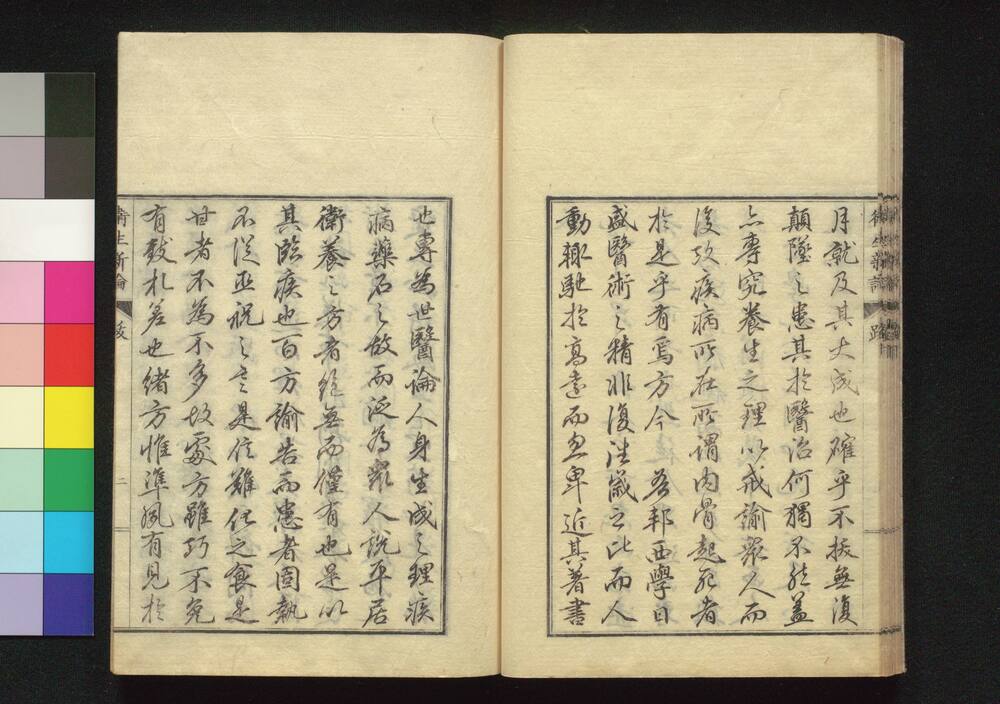 月就及其大成也確乎不拔無復
顛墜之患其於醫治何獨不然蓋
亦專究養生之理以戒諭眾人而
後攷疾病所在所謂肉骨起死者
於是乎有焉方今 吾邦西學日
盛醫術之精非復往歲之比而人
動輒馳於高遠而忽卑近其著書
也專為世醫論人身生成之理疾
病藥石之故而泛為眾人說平居
衛養之方者絕無而僅有也是以
其臨疾也百方諭告而患者固執
不從巫祝之言是信難化之食是
甘者不為不多故處方雖巧不免
有鼓札者也緒方惟準夙有見於
衛生新論 跋 二